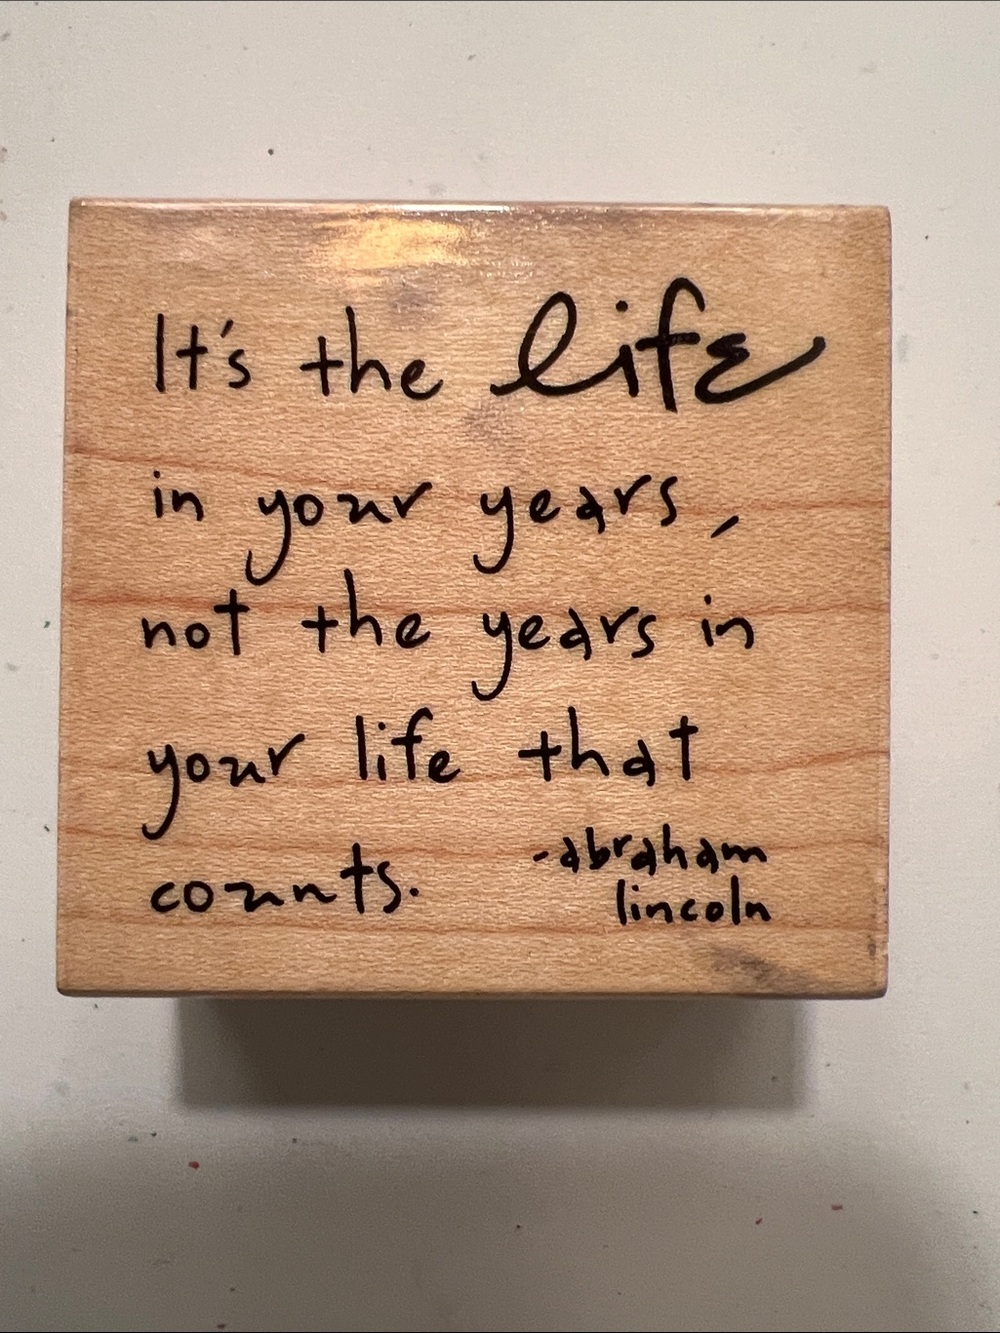 It's the life
in your years,
not the years in
your life that
counts.
-abraham
lincoln